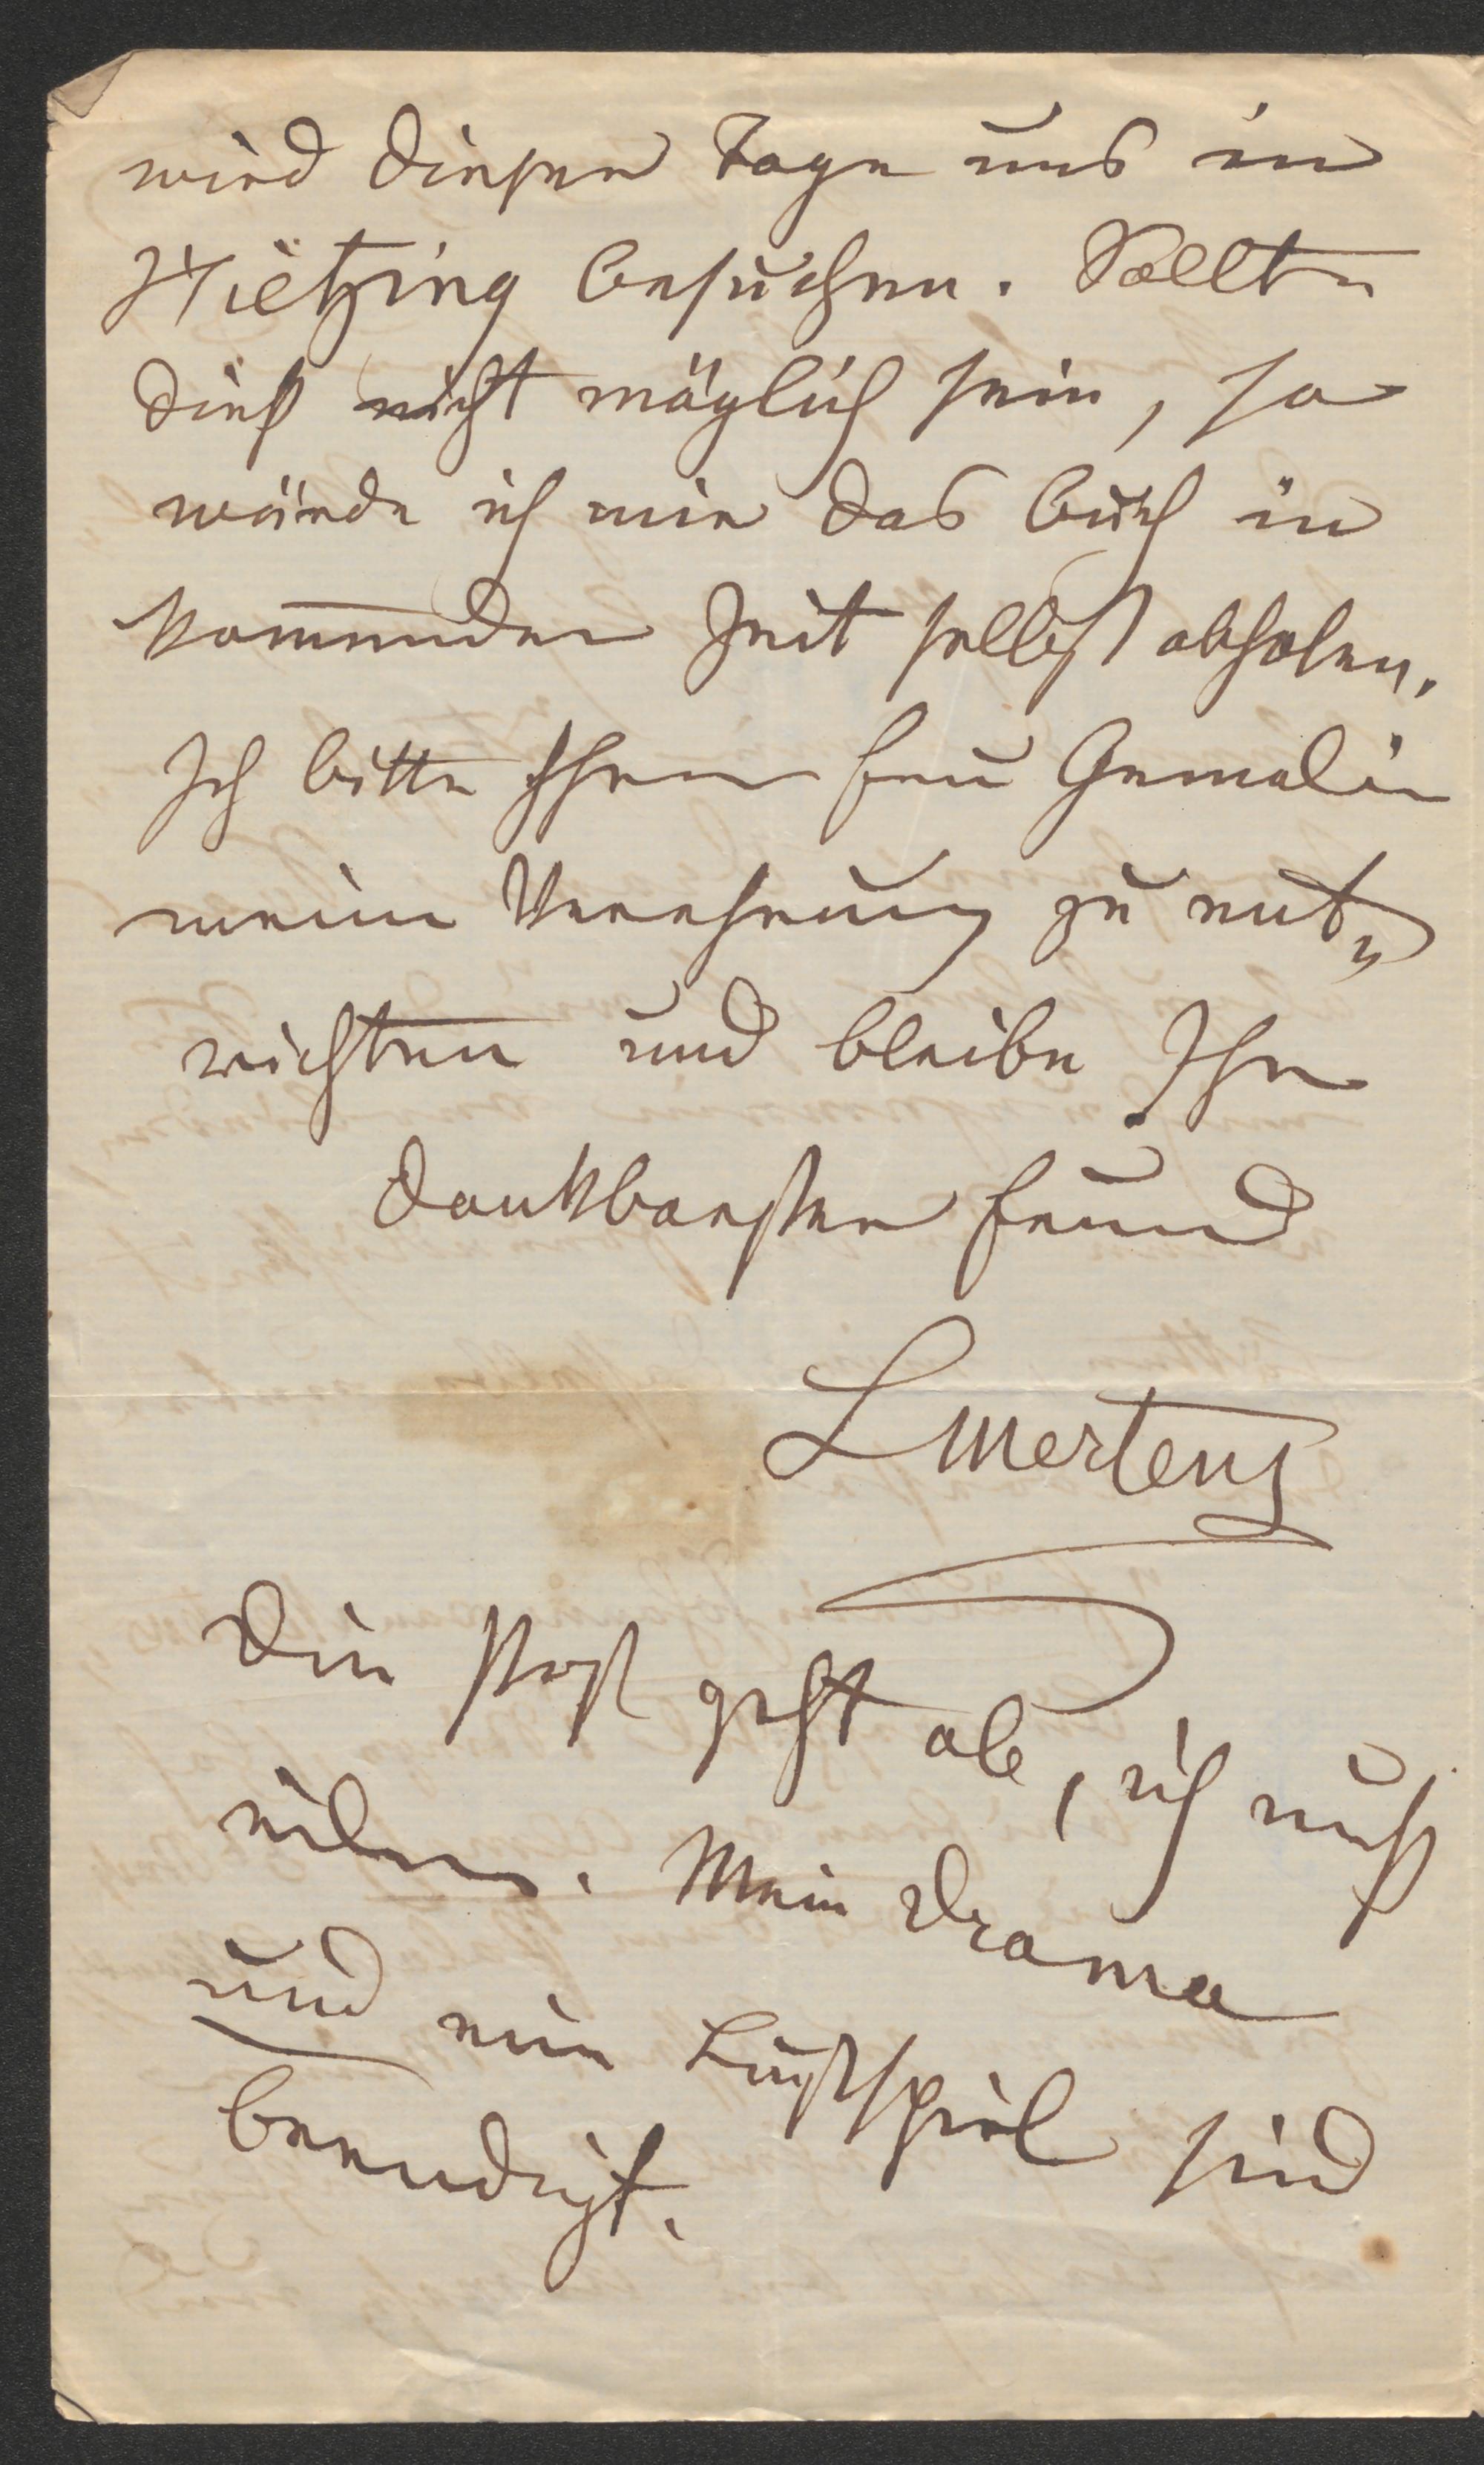 wird dieser Tage uns in
Hietzing besuchen. Sollte
dieß nicht möglich sein, so
würde ich mir das Buch in
kommender Zeit selbst abholen.
Ich bitte Ihrer Frau Gemalin
meine Verehrung zu ent„
richten und bleibe Ihr
dankbarster Freund
LMertens
Die Post geht ab, ich muß
eilen. Mein Drama
und ein Lustspiel sind
beendigt.